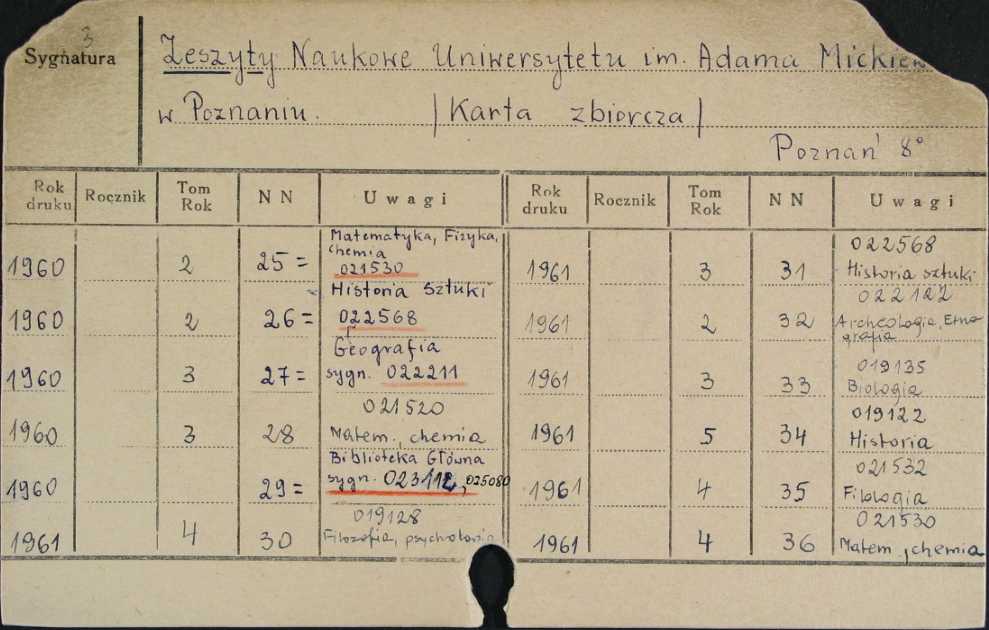 3
Sygnatura
Zeszyty Naukowe Uniwersytetu im. Adama
w Poznaniu. /Karta zbiorcza/
Poznań 8°
Rok druku Rocznik Tom Rok N N Uwagi Rok druku Rocznik Tom Rok N N Uwagi
Matematyka, Fizyka,
chemia
1960 2 25 = 021530
Historia Sztuki
1960 2 26 = 022568
Geografia
1960 3 27 = sygn. 022211
021520
1960 3 28 Matem., chemia
Biblioteka Główna
1960 29 = sygn. 023112, 025080
019128
1961 4 30 Filozofia, psychologia
022568
1961 3 31 Historia sztuki
022122
1961 2 32 Archeologia, Etno
grafia
019135
1961 3 33 Biologia
019122
1961 5 34 Historia
021532
1961 4 35 Filologia
021530
1961 4 36 Matem., chemia